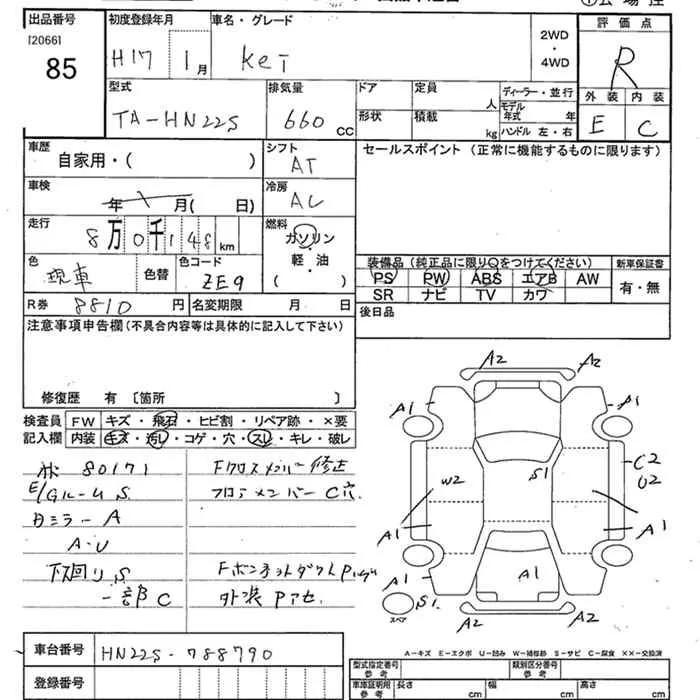 出品番号 初度登録年月 車名・グレード 2WD・4WD 評価点
[2066] H17 1月 Kei R
85
型式 排気量 ドア 定員 人 ディーラー・並行 外装 内装
TA-HN22S 660 CC 形状 積載 kg モデル年式 年 E C
ハンドル 左・右
車歴 自家用・( ) シフト AT セールスポイント (正常に機能するものに限ります)
車検 年 月( 日) 冷房 AC
走行 8万0千148km 燃料 ガソリン
軽・油
( )
色 現車 色替 色コード ZE9
装備品 (純正品に限り○をつけてください) 新車保証書
PS PW ABS エアB AW 有・無
SR ナビ TV カワ
R券 8810 円 名変期限 月 日 後日品
注意事項申告欄 (不具合内容等は具体的に記入して下さい)
修復歴 有 〔箇所 〕
検査員 FW キズ・飛石・ヒビ割・リペア跡・×要
記入欄 内装 キズ・汚レ・コゲ・穴・スレ・キレ・破レ
80171 Fクロスメンバー修正
E/Gルーム S. フロアメンバー C穴
ミラー A
A・U
下回り S. Fボンネットダクト
一部 C 外装
A2 A2
A1 A1
W2 S1 C2
U2
A1 A1
A1 A1
S1
スペア
A-キズ E-エクボ U-凹み W-補修跡 S-サビ C-腐食 ××-交換済
車台番号 HN22S-788790
登録番号
型式指定番号 参考 類別区分番号 参考
車庫証明用 参考 長さ cm 幅 cm 高さ cm